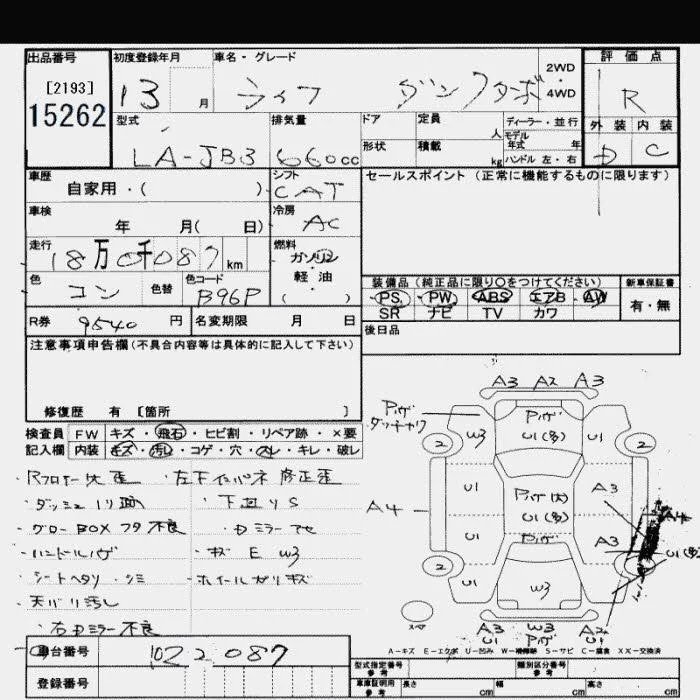 出品番号 初度登録年月 車名・グレード 2WD ・ 4WD 評価点
[2193]
15262 13 月 ライフ ダンクターボ R
型式 排気量 ドア 定員 人 ディーラー・並行 外装 内装
モデル年式 年
LA-JB3 660cc 形状 積載 kg ハンドル 左・右 D C
車歴 シフト セールスポイント (正常に機能するものに限ります)
自家用・( ) CAT
車検 冷房
年 月( 日) AC
走行 燃料
18万0千087km ガソリン
軽油
( )
色 色替 色コード 装備品 (純正品に限り○をつけてください) 新車保証書
コン B96P PS PW ABS エアB AW 有・無
SR ナビ TV カワ
R券 9540 円 名変期限 月 日 後日品
注意事項申告欄(不具合内容等は具体的に記入して下さい)
修復歴 有 [箇所 ]
検査員 FW キズ・飛石・ヒビ割・リペア跡・×要
記入欄 内装 キズ・汚し・コゲ・穴・スレ・キレ・破レ
左下インパネ修正歪
下廻りS
グローBOXフタ不良
ハンドルハゲ ・キズ E W3
シートヘタリ・シミ ・ホイールガリキズ
天バリ汚し
右Dミラー不良
A3 A2 A3
Pハゲ
W3 U1(多) U1
2 2
U1 Pハゲ(大) A3
A4 U1(多) A4
U1 Pハゲ A3
2 U1(多)
U1 W3
スペア
A3 W3 A2
U1 Pハゲ U1
A-キズ E-エクボ U-凹み W-補修跡 S-サビ C-腐食 X X-交換済
車台番号 1022087
登録番号
型式指定番号 参考 類別区分番号 参考
車庫証明用 参考 長さ cm 幅 cm 高さ cm